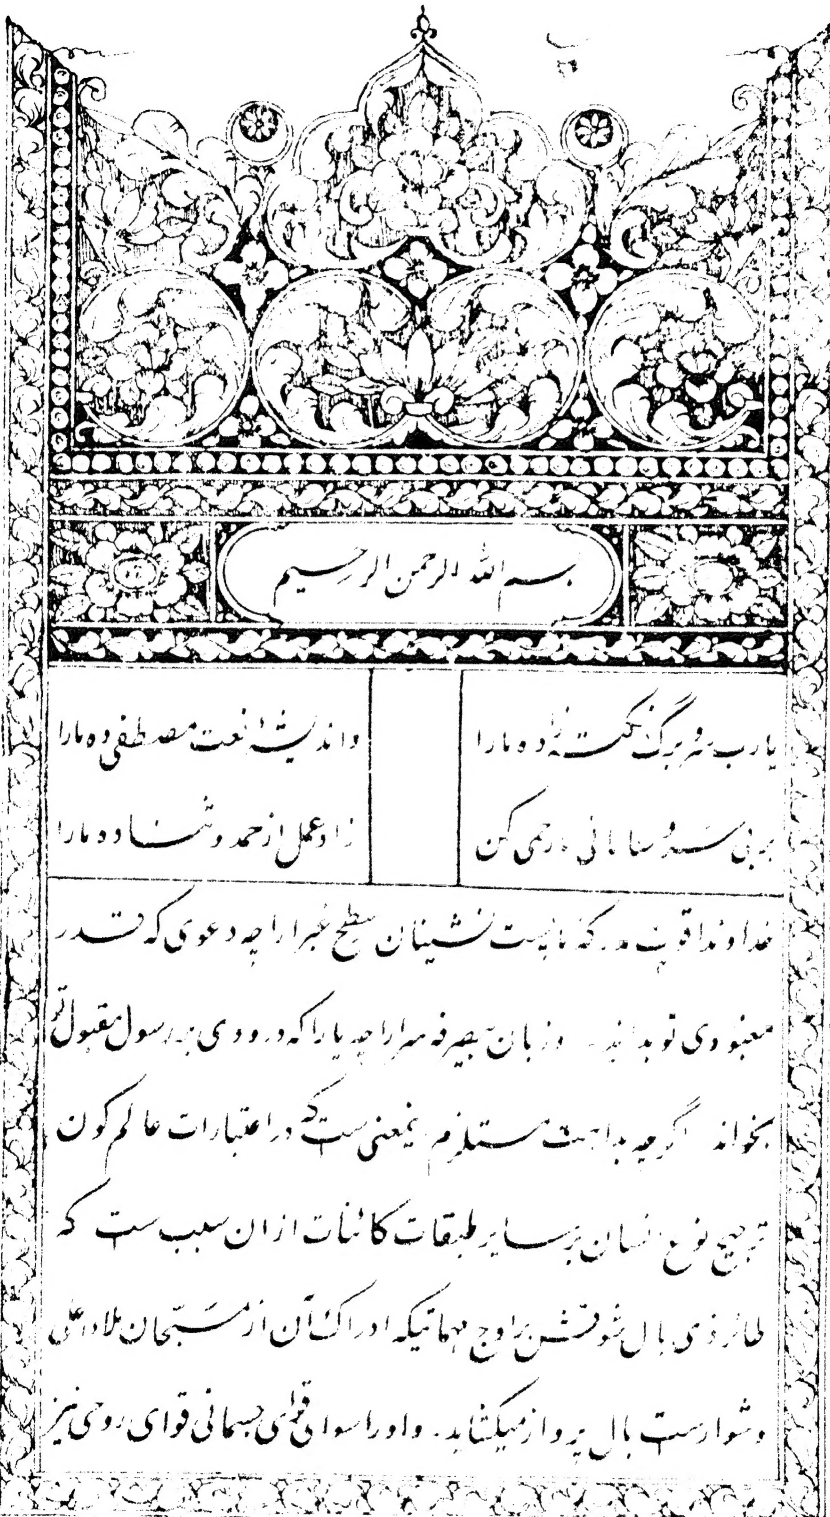 بسم الله الرحمن الرحیم
یارب سر و برگ نکته زا ده مارا
واندیشهٔ نعت مصطفی ده مارا
بر بی سر و سامانی ما رحمی کن
زاد عمل از حمد و ثنا ده مارا
خداوندا قوت مدرکهٔ ما پست نشینان سطح غبرا را چه دعوی که قدر
معبودی تو بداند و زبان بیصرفه سرا را چه یارا که درودی بر رسول مقبول تو
بخواند اگرچه بداهت مستلزم اینمعنی ست که در اعتبارات عالم کون
ترجیح نوع انسان بر سایر طبقات کائنات ازان سبب ست که
طائر ذی بال شوقش بر اوج مهماتیکه ادراک آن از مسبحان ملاء اعلی
دشوارست بال پرواز میکشاید و او را سوای قوای جسمانی قوای روحی نیز